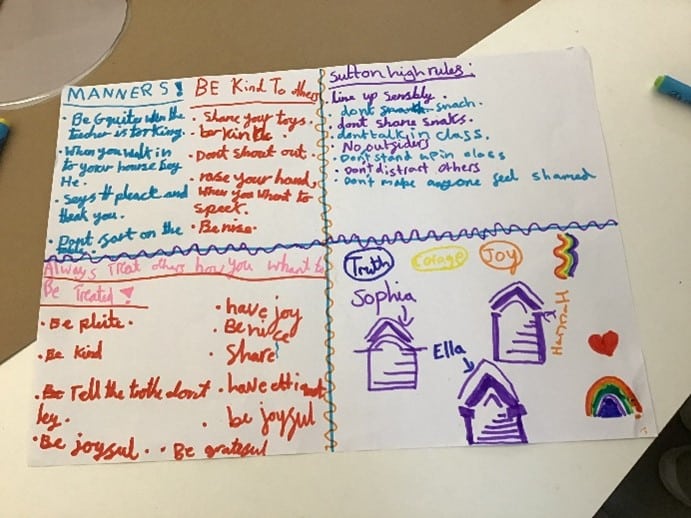 MANNERS!
· Be Gquity when the
teacher is torking.
· When you walk in
to your hourse say
He.
· says pleact and
thank you.
· Dont sort on the
BE Kind To others
· Share your toys.
be kind.
· Dont shout out.
· rase your hand,
when you whant to
speet.
· Be nise.
Sutton high rules:
line up sensbly.
· dont snach.
· dont share snaks.
· dont talk in class.
· No outsiders
· Don't stand up in class
· Don't distract others
· Don't make anyone feel shamed
Always Treat others how you whant to
Be Treated!
· Be pleite.
· Be Kind
· Be Tell the trothe donst
ley.
· Be joysul.
· Be grateful
· have joy
· Be nice
· Share
· have
· be joysul
Truth
Corage
Joy
Sophia
Ella
Hannah